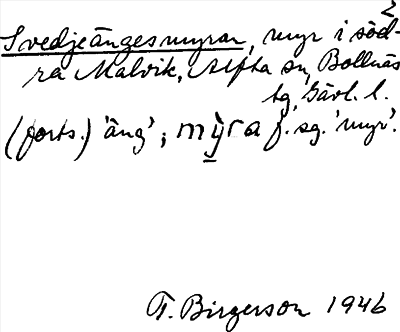 2
Svedjeängesmyran, myr i söd-
ra Malvik, Alfta sn, Bollnäs
tg, Gävl. l.
(forts.) 'äng'; mỳra f. sg. 'myr'.
T. Birgerson 1946